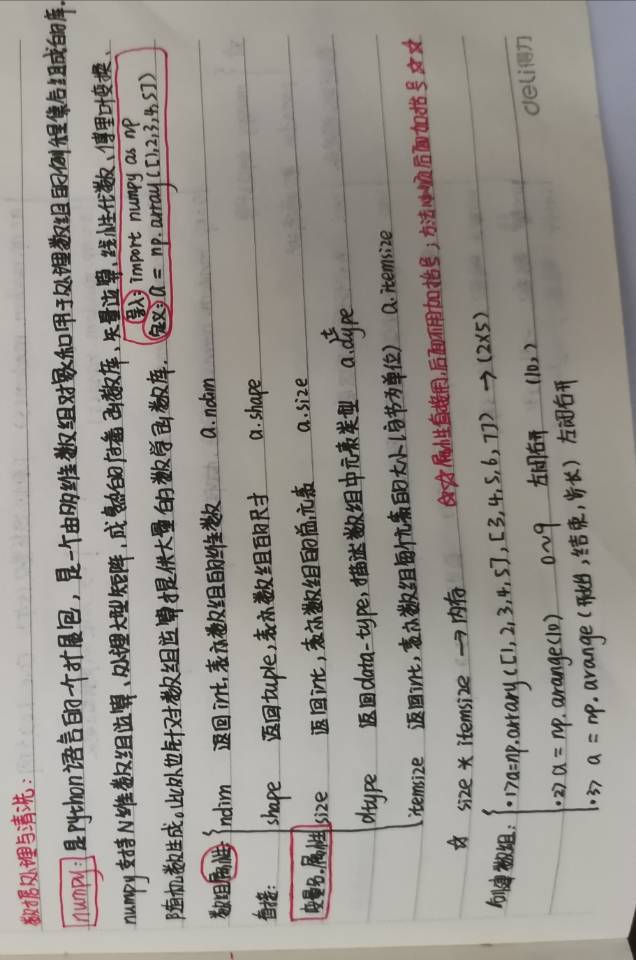 数据处理与清洗：
numpy：是Python语言的一个扩展包，是一个由多维数组对象和用于处理数组的例程集合组成的库.
numpy支持N维数组运算、处理大型矩阵，成熟的广播函数库，矢量运算，线性代数、傅里叶变换、
随机数生成。此外也针对数组运算提供大量的数学函数库.
导入：import numpy as np
定义：a = np.array([1,2,3,4,5])
数组属性：
直接：
变量名.属性
ndim 返回int，表示数组的维数 a.ndim
shape 返回tuple，表示数组的尺寸 a.shape
size 返回int，表示数组的总元素 a.size
dtype 返回data-type，描述数组中元素类型 a.dtype
itemsize 返回int，表示数组每个元素的大小(字节为单位) a.itemsize
☆ size * itemsize → 内存
属性直接用，后面不用加括号；方法 后面加括号
创建数组：
·1> a=np.array([1,2,3,4,5],[3,4,5,6,7]) → (2x5)
·2) a = np.arange(10) 0~9 左闭右开 (10,)
·3> a = np.arange(开始,结束,步长) 左闭右开
deli得力